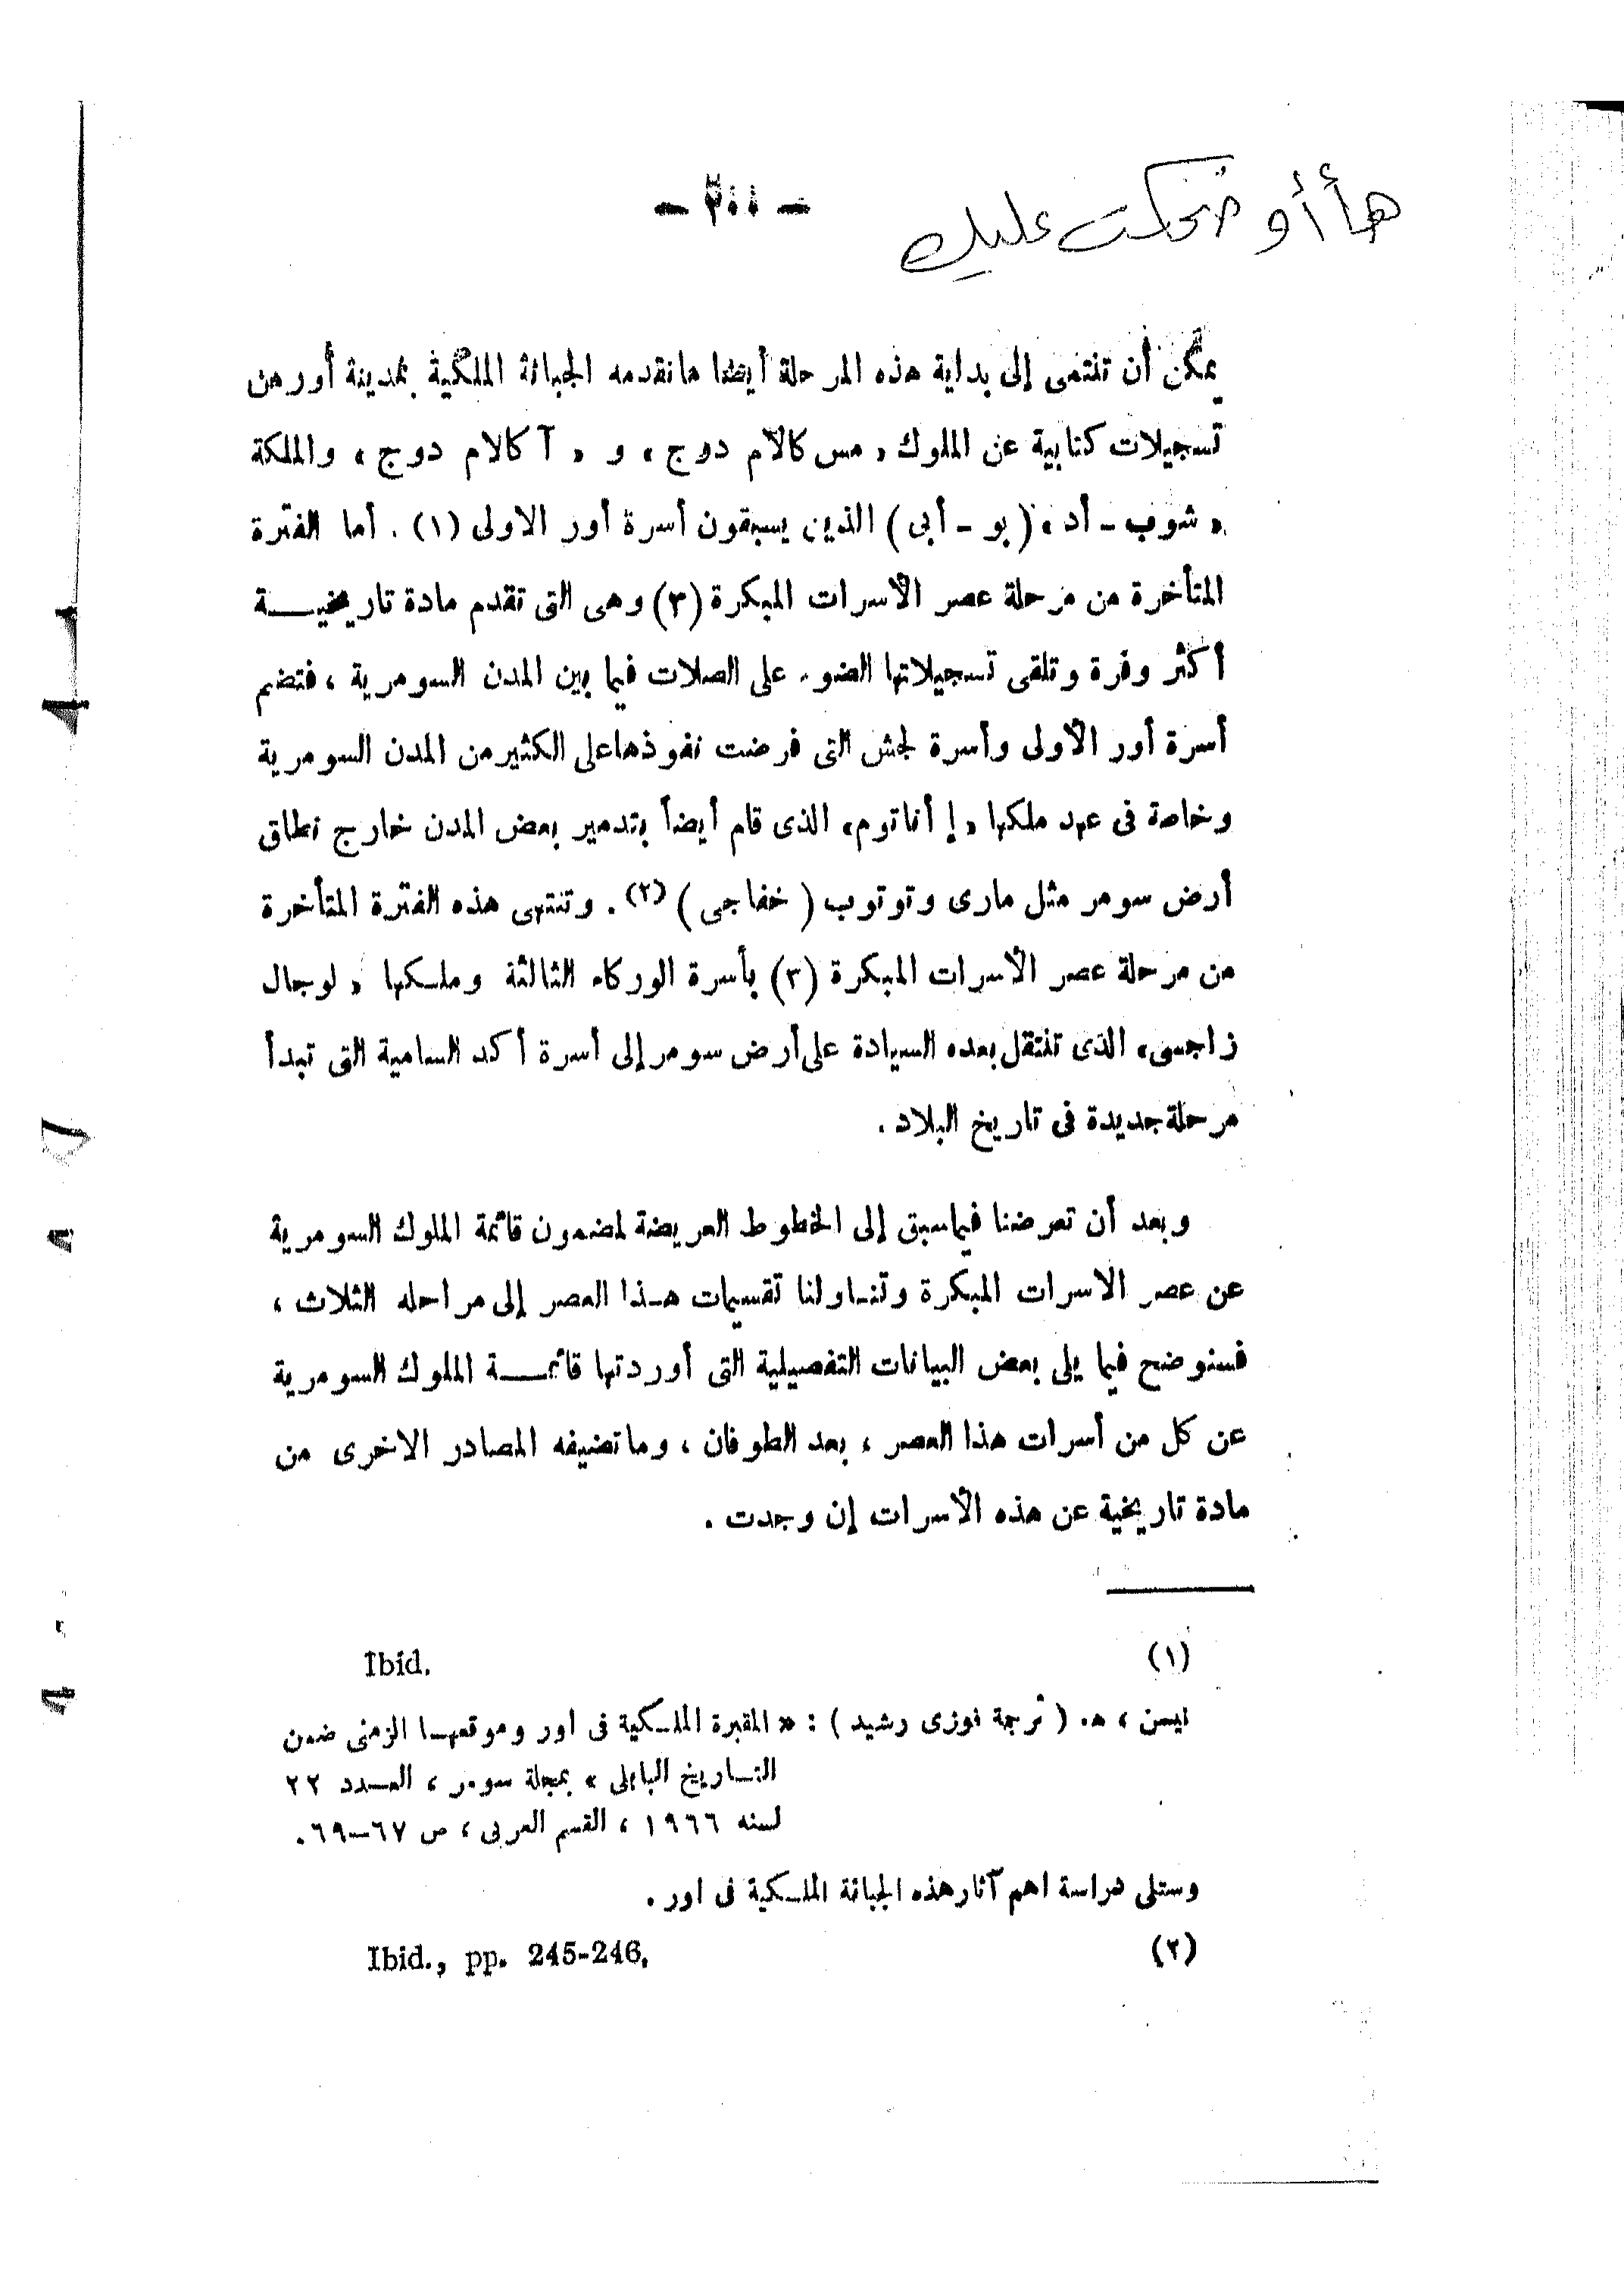 هأأو ضحكت عليك
- ٢٠٠ -
يمكن أن تنتمى إلى بداية هذه المرحلة أيضا ما نقدمه الجبانة الملكية بمدينة أور من
تسجيلات كتابية عن الملوك « مس كالام دوج » و « آ كالام دوج » والملكة
« شوب - أد » ( بو - أبى ) الذين يسبقون أسرة أور الاولى (١) . أما الفترة
المتأخرة من مرحلة عصر الأسرات المبكرة (٣) وهى التى تقدم مادة تاريخيـــة
أكثر وفرة وتلقى تسجيلاتها الضوء على الصلات فيما بين المدن السومرية ، فتضم
أسرة أور الأولى وأسرة لجش التى فرضت نفوذها على الكثير من المدن السومرية
وخاصة فى عهد ملكها « إ أناتوم » الذى قام أيضاً بتدمير بعض المدن خارج نطاق
أرض سومر مثل مارى وتوتوب ( خفاجى ) (٢) . وتنتهى هذه الفترة المتأخرة
من مرحلة عصر الأسرات المبكرة (٣) بأسرة الوركاء الثالثة وملـكها « لوجال
زاجسى » الذى تنتقل بعده السيادة على أرض سومر إلى أسرة أكد السامية التى تبدأ
مرحلة جديدة فى تاريخ البلاد .
وبعد أن تعرضنا فيما سبق إلى الخطوط العريضة لمضمون قائمة الملوك السومرية
عن عصر الاسرات المبكرة وتنـاولنا تقسيمات هـذا العصر إلى مراحله الثلاث ،
فسنوضح فيما يلى بعض البيانات التفصيلية التى أوردتها قائمـــة الملوك السومرية
عن كل من أسرات هذا العصر ، بعد الطوفان ، وما تضيفه المصادر الاخرى من
مادة تاريخية عن هذه الأسرات إن وجدت .
(١) Ibid.
نيسن ، هـ. ( ترجمة فوزى رشيد ) : « المقبرة الملـكية فى اور وموقعهـا الزمنى ضمن
التـاريخ البابلى » بمجلة سومر ، العـدد ٢٢
لسنه ١٩٦٦ ، القسم العربى ، ص ٦٧-٦٩.
وستلى دراسة اهم آثار هذه الجبانة الملـكية فى اور .
(٢) Ibid., pp. 245-246.